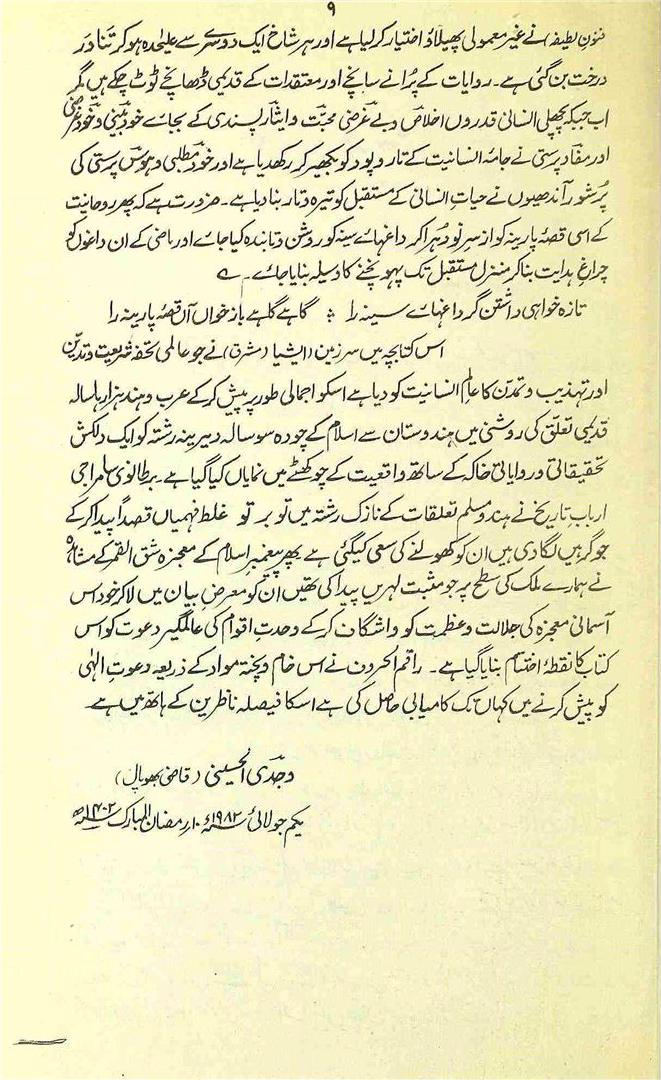 ۹
فنونِ لطیفہ) نے غیر معمولی پھیلاؤ اختیار کر لیا ہے اور ہر شاخ ایک دوسرے سے علیٰحدہ ہو کر تنا در
درخت بن گئی ہے۔ روایات کے پُرانے سانچے اور معتقدات کے قدیمی ڈھانچے ٹوٹ چکے ہیں مگر
اب جبکہ پچھلی انسانی قدروں اخلاص و بے غرضی محبّت و ایثار پسندی کے بجائے خود بینی و خود غرضی
اور مفاد پرستی نے جامۂ انسانیت کے تار و پود کو بکھیر کر رکھدیا ہے اور خود مطلبی و ہوس پرستی کی
پُر شور آندھیوں نے حیاتِ انسانی کے مستقبل کو تیرہ و تار بنا دیا ہے۔ ضرورت ہے کہ پھر روحانیت
کے اسی قصۂ پارینہ کو از سرِ نو دُہرا کر داغہائے سینہ کو روشن و تابندہ کیا جائے اور ماضی کے ان داغوں کو
چراغِ ہدایت بنا کر منزلِ مستقبل تک پہونچنے کا وسیلہ بنایا جائے۔ ؎
تازہ خواہی داشتن گر داغہائے سینہ را ؛ گاہے گاہے باز خواں آں قصۂ پارینہ را
اس کتابچہ میں سرزمین (ایشیا و مشرق) نے جو عالمی تحفہ شریعت و تدیّن
اور تہذیب و تمدّن کا عالمِ انسانیت کو دیا ہے اسکو اجمالی طور پر پیش کر کے عرب و ہند ہزارہا سالہ
قدیمی تعلّق کی روشنی میں ہندوستان سے اسلام کے چودہ سو سالہ دیرینہ رشتہ کو ایک دلکش
تحقیقاتی و روایاتی خاکہ کے ساتھ واقعیت کے چوکھٹے میں نمایاں کیا گیا ہے۔ برطانوی سامراجی
اربابِ تاریخ نے ہندو مسلم تعلقات کے نازک رشتہ میں تو بر تو غلط فہمیاں قصداً پیدا کر کے
جو گرہیں لگا دی ہیں ان کو کھولنے کی سعی کیگئی ہے پھر پیغمبرِ اسلام کے معجزہ شق القمر کے مشاہدہ
نے ہمارے ملک کی سطح پر جو مثبت لہریں پیدا کی تھیں ان کو معرضِ بیان میں لا کر خود اس
آسمانی معجزہ کی جلالت و عظمت کو واشگاف کر کے وحدتِ اقوام کی عالمگیر دعوت کو اس
کتاب کا نقطۂ اختتام بنایا گیا ہے۔ راقم الحروف نے اس خام و پختہ مواد کے ذریعہ دعوتِ الٰہی
کو پیش کرنے میں کہاں تک کامیابی حاصل کی ہے اسکا فیصلہ ناظرین کے ہاتھ میں ہے۔
وجدی الحسینی (قاضی بھوپال)
یکم جولائی ۱۹۸۲ء ۱۰ر رمضان المبارک ۱۴۰۲ھ